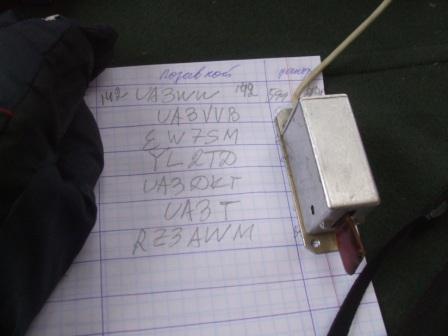 позывной
142 UA3WW 142 599
UA3VVB
EW7SM
YL2TD
UA3DKT
UA3T
RZ3AWM